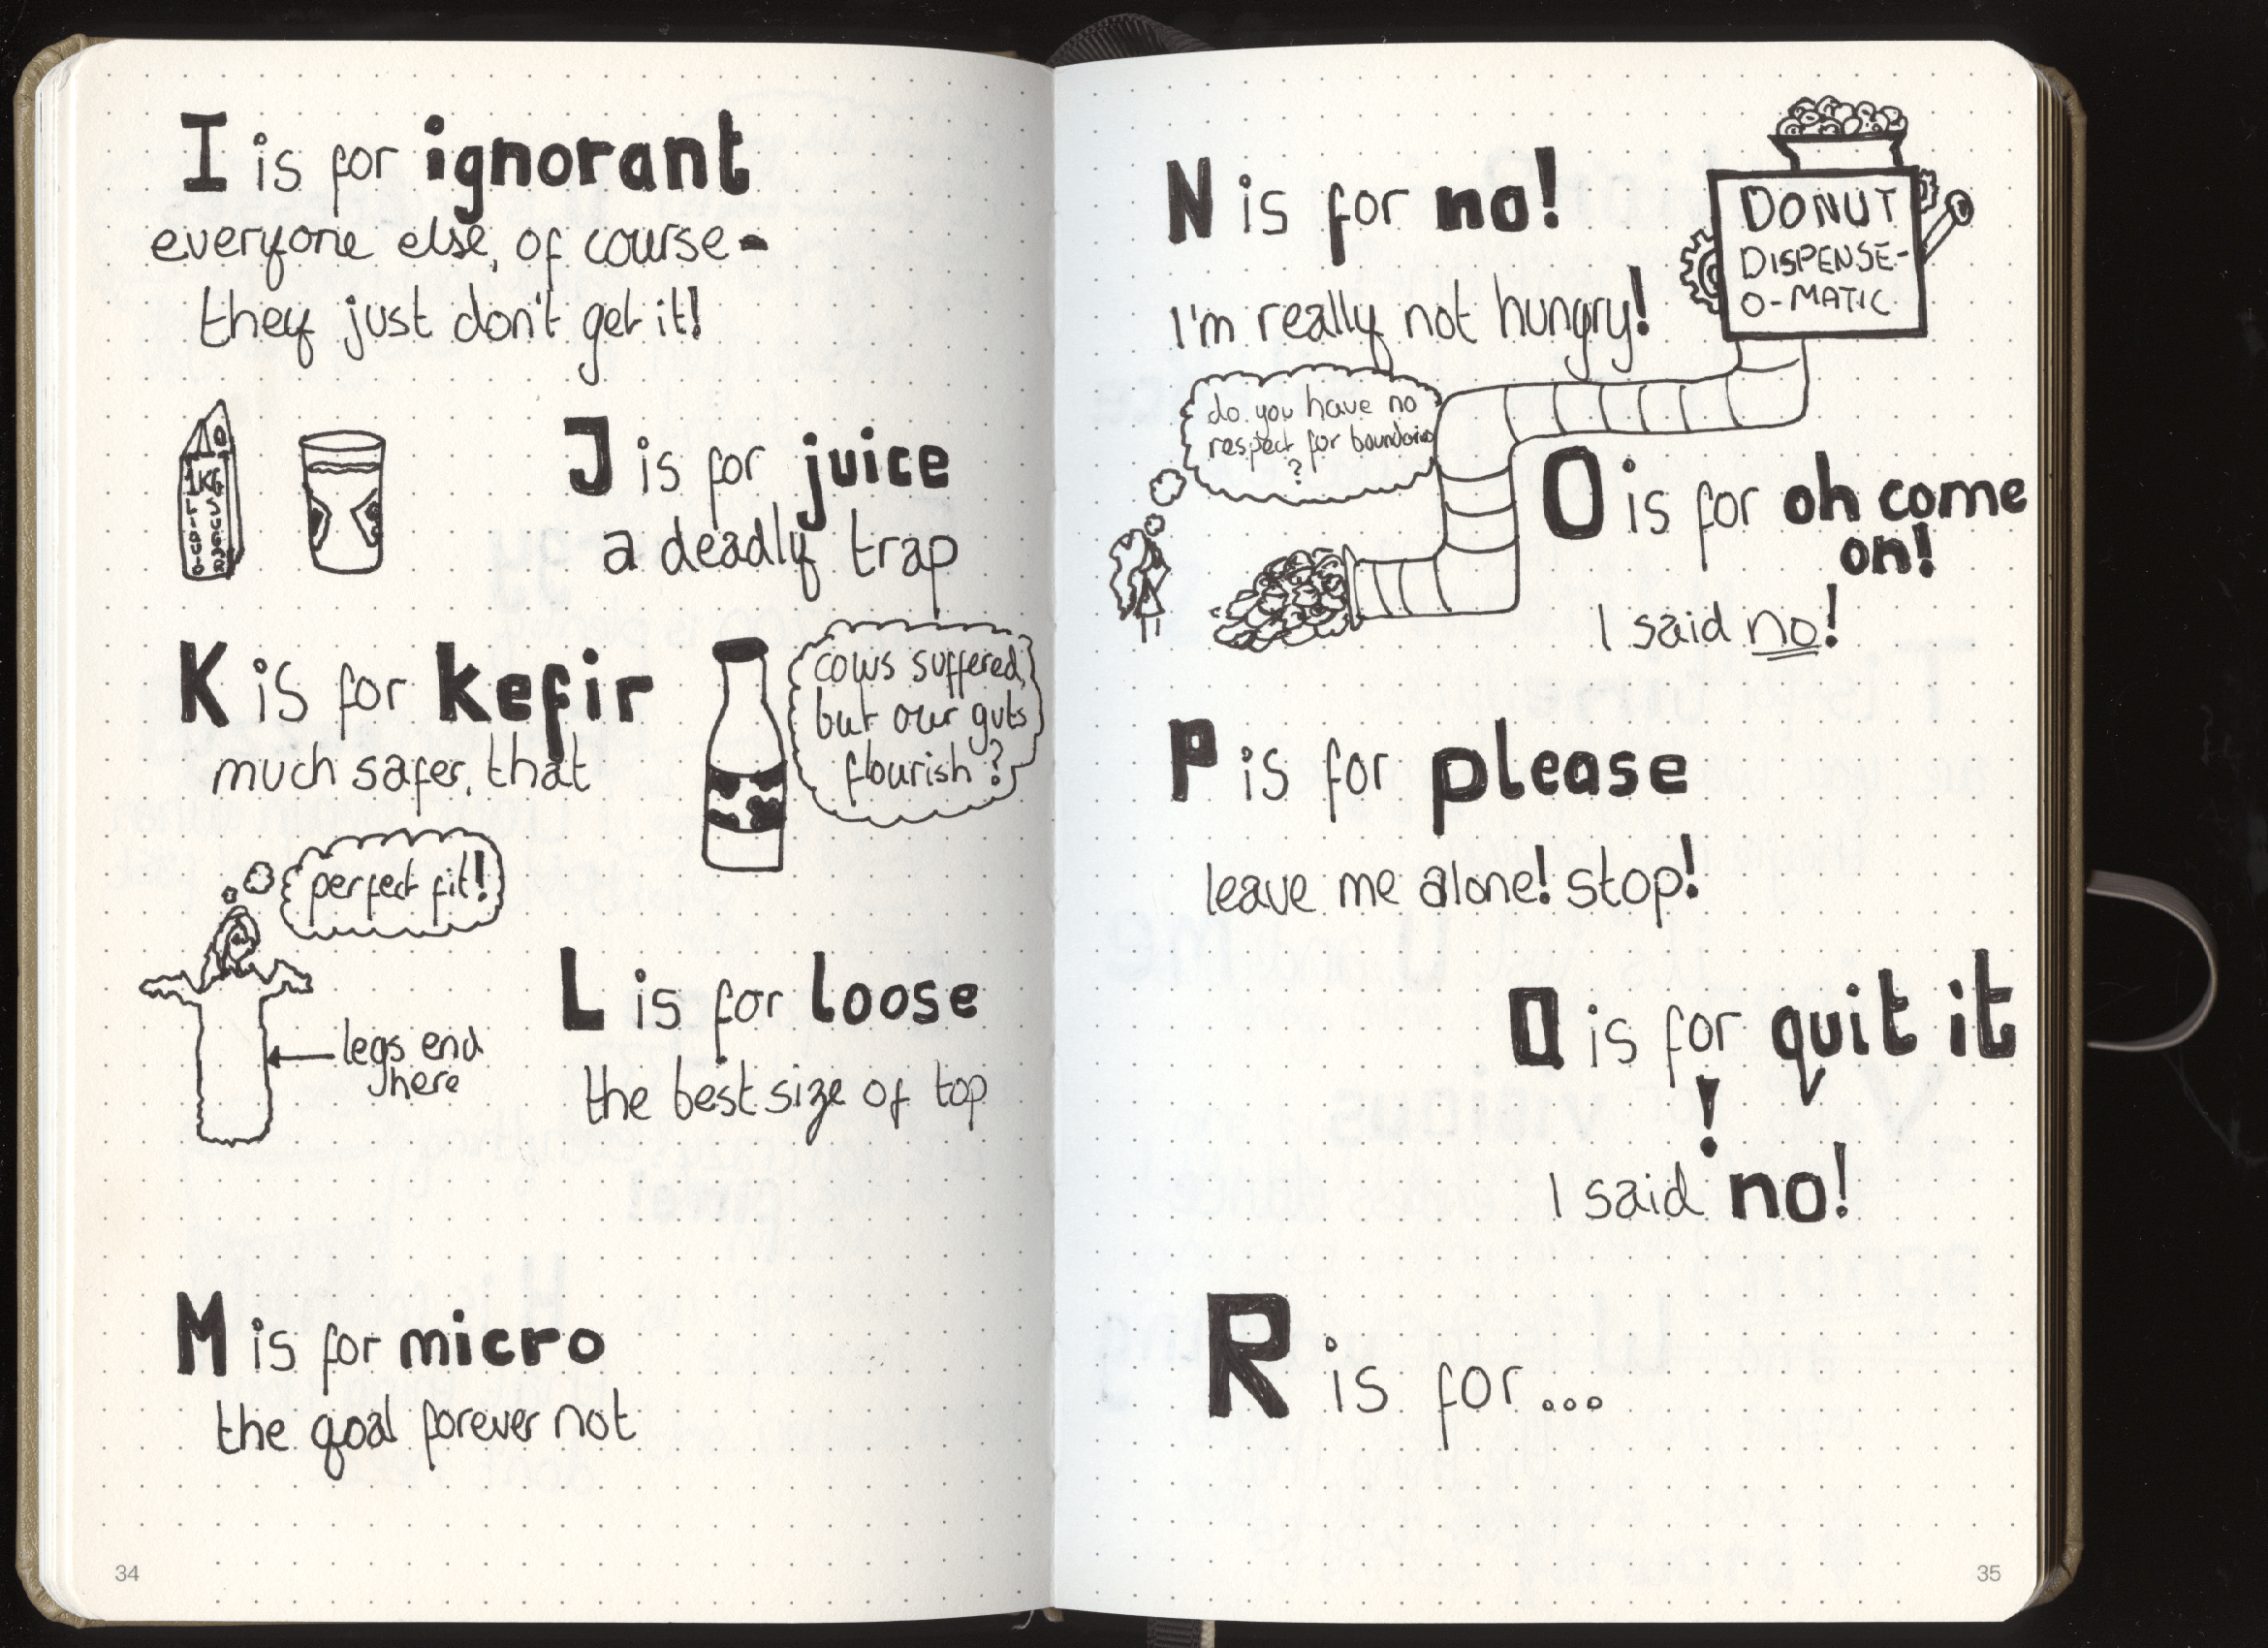 I is for ignorant
everyone else, of course -
they just don't get it!
1KG
J is for juice
a deadly trap
K is for kefir
much safer, that
cows suffered,
but our guts
flourish?
perfect fit!
legs end
here
L is for loose
the best size of top
M is for micro
the goal forever not
34
N is for no!
I'm really not hungry!
DONUT
DISPENSE-
O-MATIC
do you have no
respect for boundaries
?
O is for oh come
on!
I said no!
P is for please
leave me alone! stop!
Q is for quit it
!
I said no!
R is for...
35